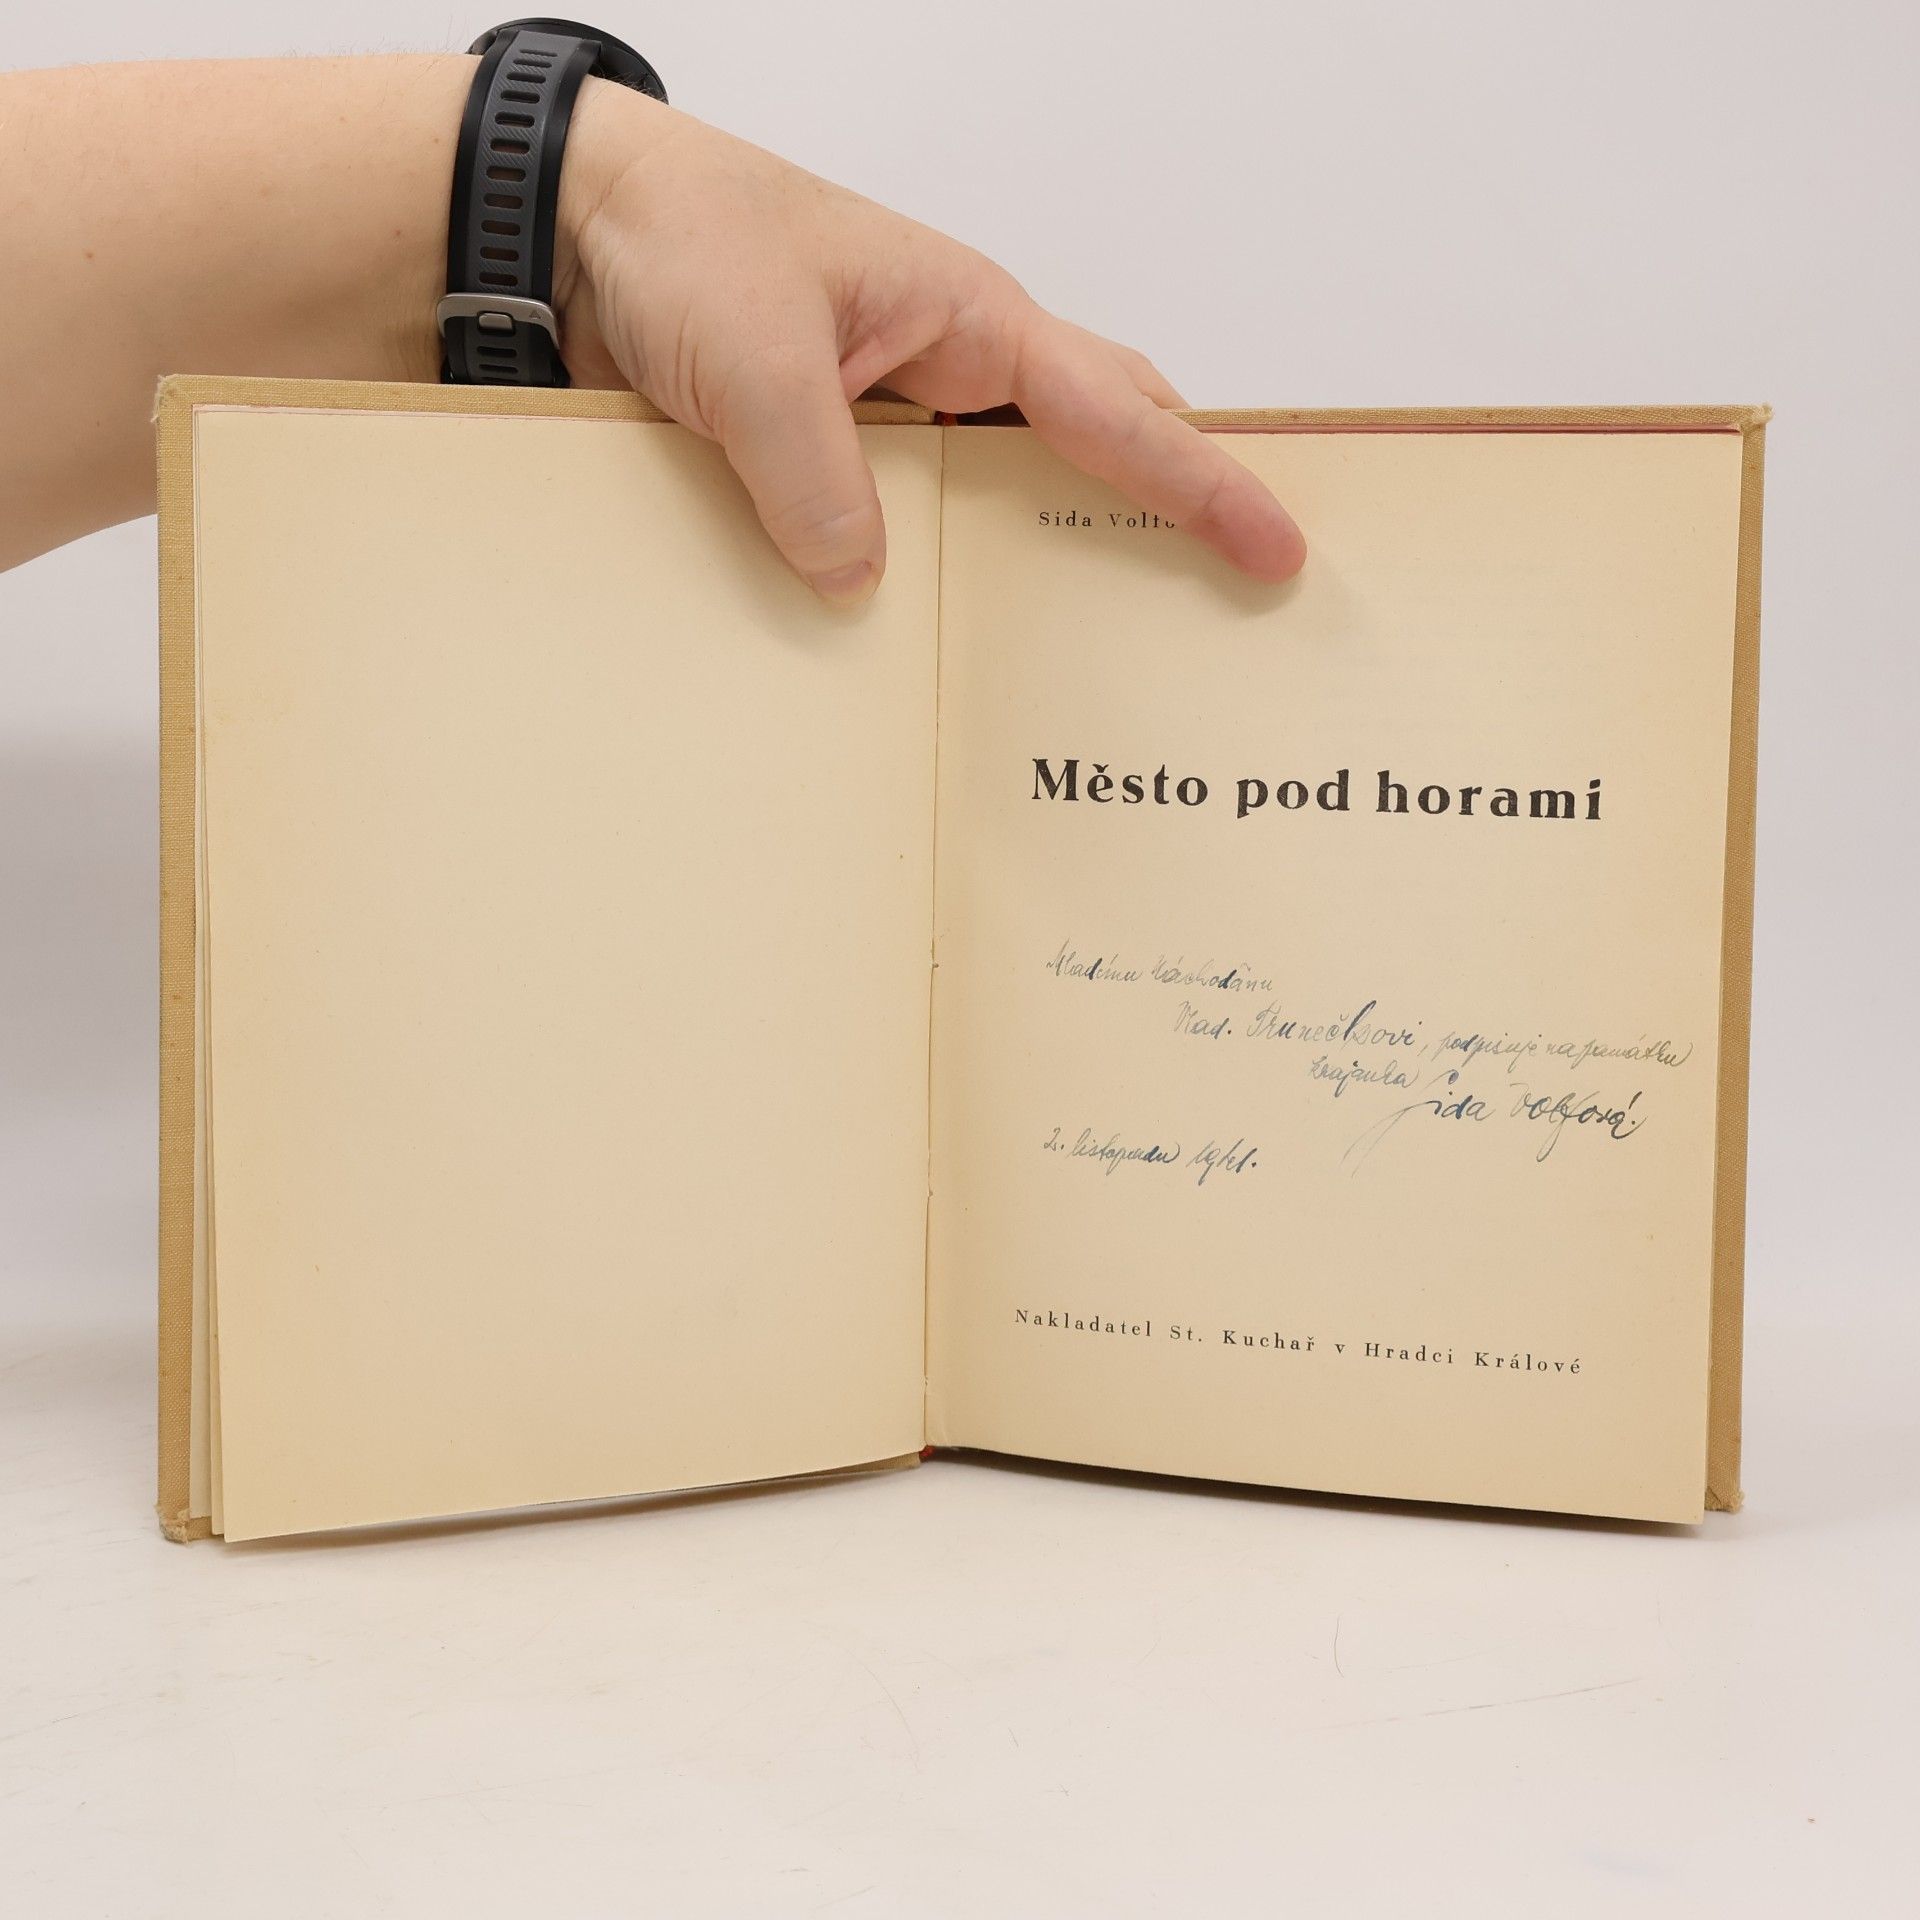 Sida Volfo
Město pod horami
Mladému Náchoďanu
Vlad. Trunečkovi, podpisuje na památku
krajanka
Sida Volfová.
2. listopadu
Nakladatel St. Kuchař v Hradci Králové